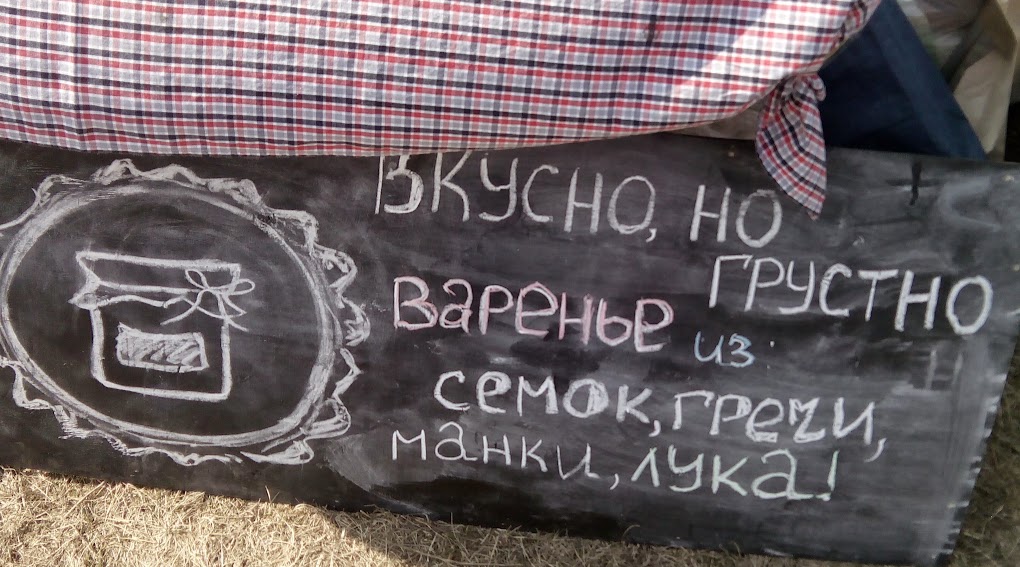 Вкусно, но
грустно
Варенье из:
семок, гречи,
манки, лука!